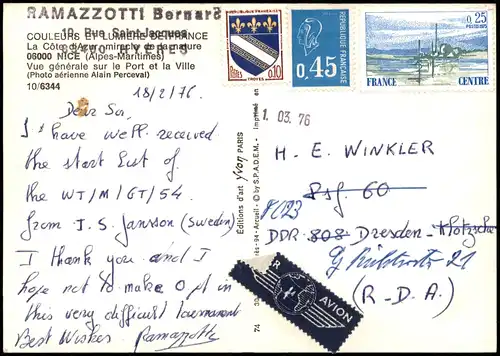 RAMAZZOTTI Bernard
18, Rue Saint-Jacques
COULEURS ET LUMIÈRE DE FRANCE
La Côte d'Azur
06000 NICE (Alpes-Maritimes)
Vue générale sur le Port et la Ville
(Photo aérienne Alain Perceval)
10/6344
18/2/76.
Dear Sir,
I have well received
the start list of
the WT/M/GT/54
from J.S. Jansson (Sweden)
I thank you and I
hope not to make 0 pt in
this very difficult tournament
Best Wishes Ramazzotti
Editions d'art yvon PARIS
94 - Arcueil - © by S.P.A.D.E.M. - Imprimé en
TROYES
POSTES
0,10
0,45
RÉPUBLIQUE FRANÇAISE
0,25
POSTES 1975
FRANCE CENTRE
1. 03. 76
H. E. WINKLER
Psf. 60
8023
DDR 808 Dresden - Klotzsche
21
(R.D.A)
PAR AVION